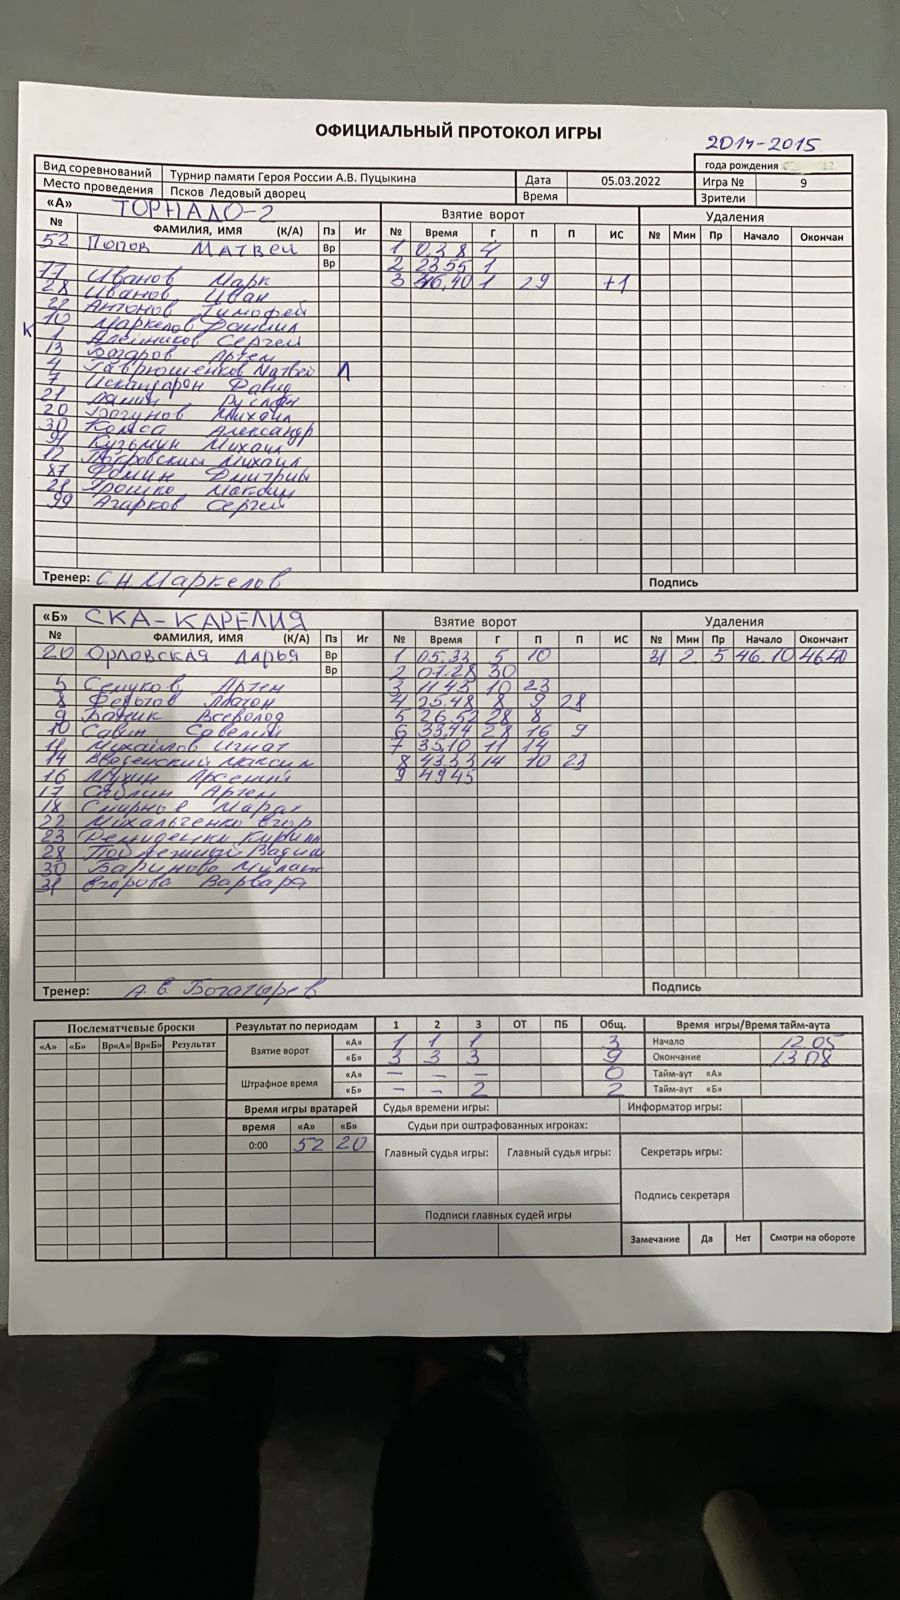 ОФИЦИАЛЬНЫЙ ПРОТОКОЛ ИГРЫ
2014-2015
Вид соревнований Турнир памяти Героя России А.В. Пуцыкина Дата 05.03.2022 года рождения
Место проведения Псков Ледовый дворец Время Игра № 9
Зрители
«А» ТОРНАДО-2 Взятие ворот Удаления
№ ФАМИЛИЯ, ИМЯ (К/А) Пз Иг № Время Г П П ИС № Мин Пр Начало Окончан
52 Попов Матвей Вр 1 03 8 4
Вр 2 23.55 1
17 Иванов Марк 3 46,40 1 29 +1
28 Иванов Иван
22 Антонов Тимофей
К 10 Маркелов Даниил
1 Алейников Сергей
13 Артем
4 Гаврюшенков Матвей А
7 Давид
21 Руслан
20 Богунов Михаил
30 Александр
91 Кузьмин Михаил
12 Покровский Михаил
87 Фомин Дмитрий
21 Трошко Максим
99 Агарков Сергей
Тренер: С.Н. Маркелов Подпись
«Б» СКА-КАРЕЛИЯ Взятие ворот Удаления
№ ФАМИЛИЯ, ИМЯ (К/А) Пз Иг № Время Г П П ИС № Мин Пр Начало Окончант
20 Орловская Дарья Вр 1 05.33 5 10 31 2 5 46.10 46.40
Вр 2 07.28 30
5 Семуков Артем 3 11.45 10 23
8 Федотов Платон 4 25.48 8 9 28
9 Баник Всеволод 5 26.52 28 8
10 Савин Савелий 6 33.44 28 16 9
11 Михайлов Игнат 7 35.10 11 14
14 Введенский Максим 8 43.53 14 10 23
16 Мухин Арсений 9 4945
17 Саблин Артем
18 Смирнов Марат
22 Михальченко Егор
23 Демиденко Кирилл
28 Вадим
30 Баринова Милана
31 Егорова Варвара
Тренер: А.В. Богатырев Подпись
Послематчевые броски Результат по периодам 1 2 3 ОТ ПБ Общ. Время игры/Время тайм-аута
«А» «Б» Вр«А» Вр«Б» Результат Взятие ворот «А» 1 1 1 3 Начало 12.05
«Б» 3 3 3 9 Окончание 13.08
Штрафное время «А» – – – 0 Тайм-аут «А»
«Б» – – 2 2 Тайм-аут «Б»
Время игры вратарей Судья времени игры: Информатор игры:
время «А» «Б» Судьи при оштрафованных игроках:
0:00 52 20 Главный судья игры: Главный судья игры: Секретарь игры:
Подпись секретаря
Подписи главных судей игры
Замечание Да Нет Смотри на обороте